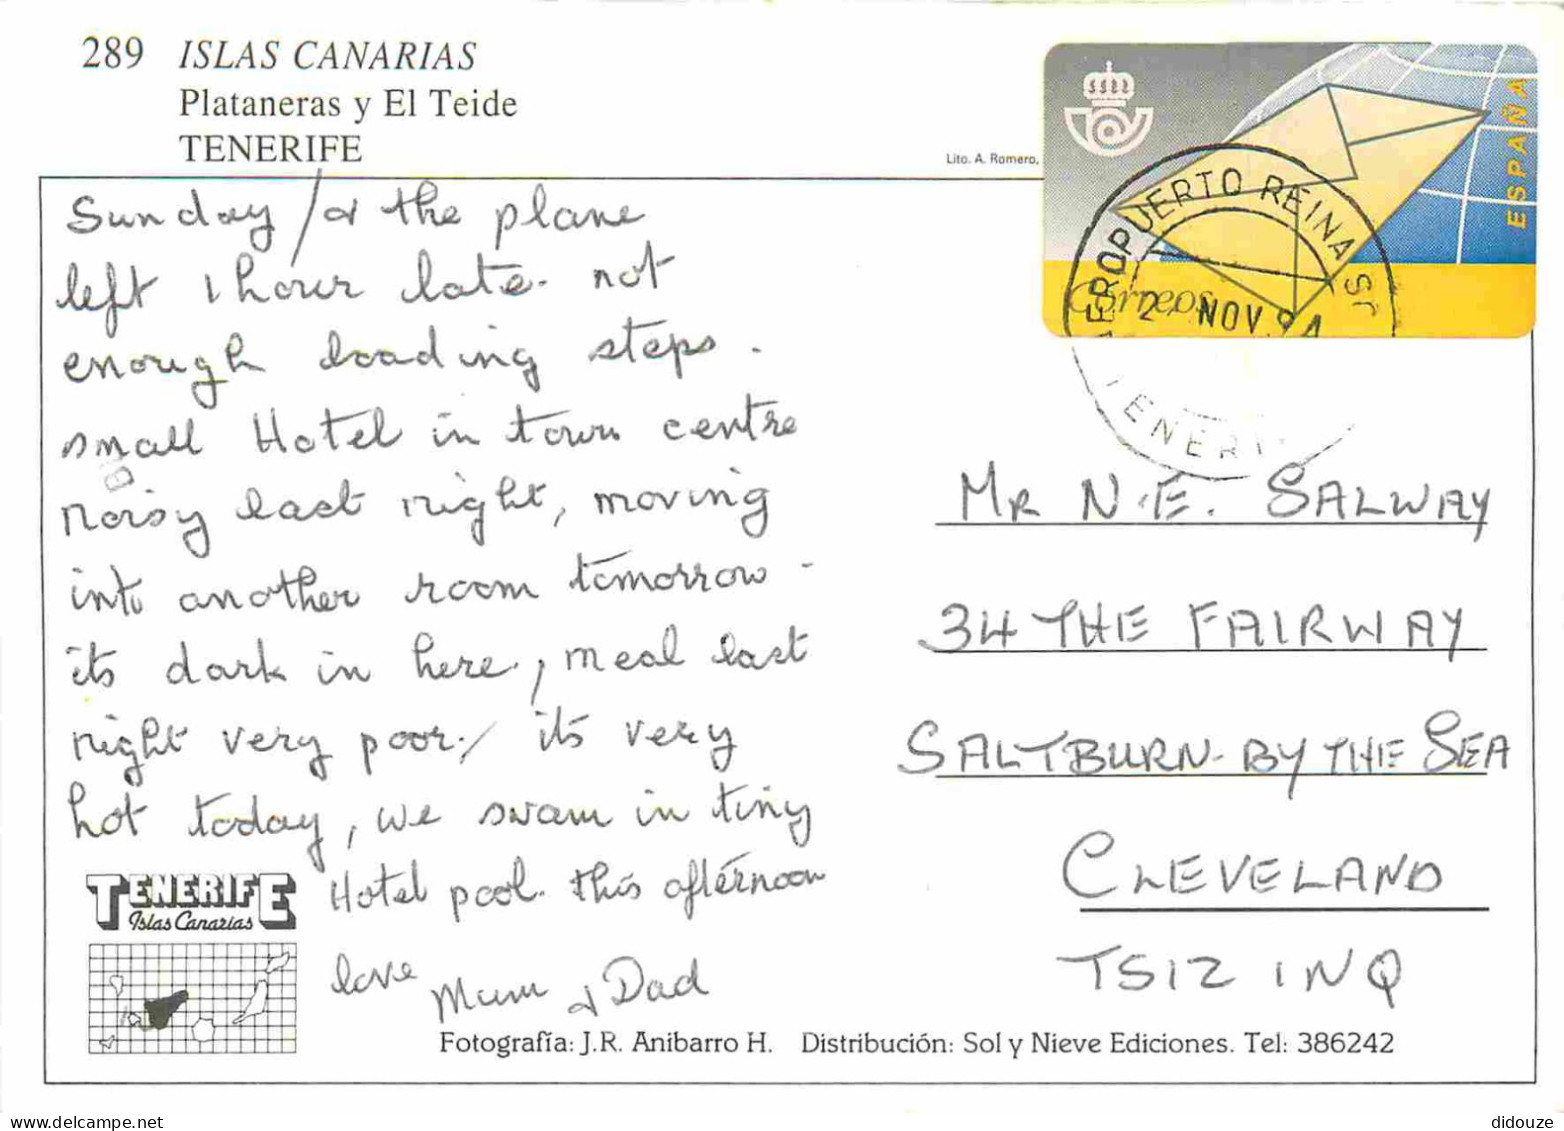 289 ISLAS CANARIAS
Plataneras y El Teide
TENERIFE
Lito. A. Romero,
ESPAÑA
Correos
AEROPUERTO REINA SOFIA
2 NOV.94
TENERIFE
Sunday / & the plane
left 1 hour late. not
enough loading steps.
small Hotel in town centre
noisy last night, moving
into another room tomorrow -
its dark in here, meal last
night very poor. / its very
hot today, we swam in tiny
Hotel pool. this afternoon
love Mum & Dad
MR N.E. SALWAY
34 THE FAIRWAY
SALTBURN-BY THE SEA
CLEVELAND
TS12 1NQ
TENERIFE
Islas Canarias
Fotografía: J.R. Anibarro H. Distribución: Sol y Nieve Ediciones. Tel: 386242
delcampe.net
didouze